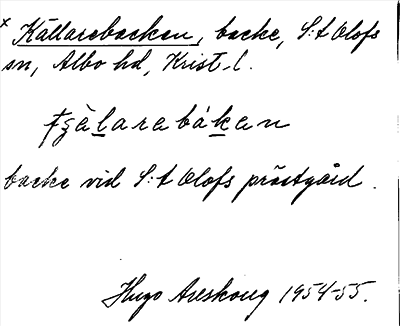 x Källarebacken, backe, S:t Olofs
sn, Albo hd, Krist. l.
backe vid S:t Olofs prästgård.
Hugo Areskoug 1954-55.